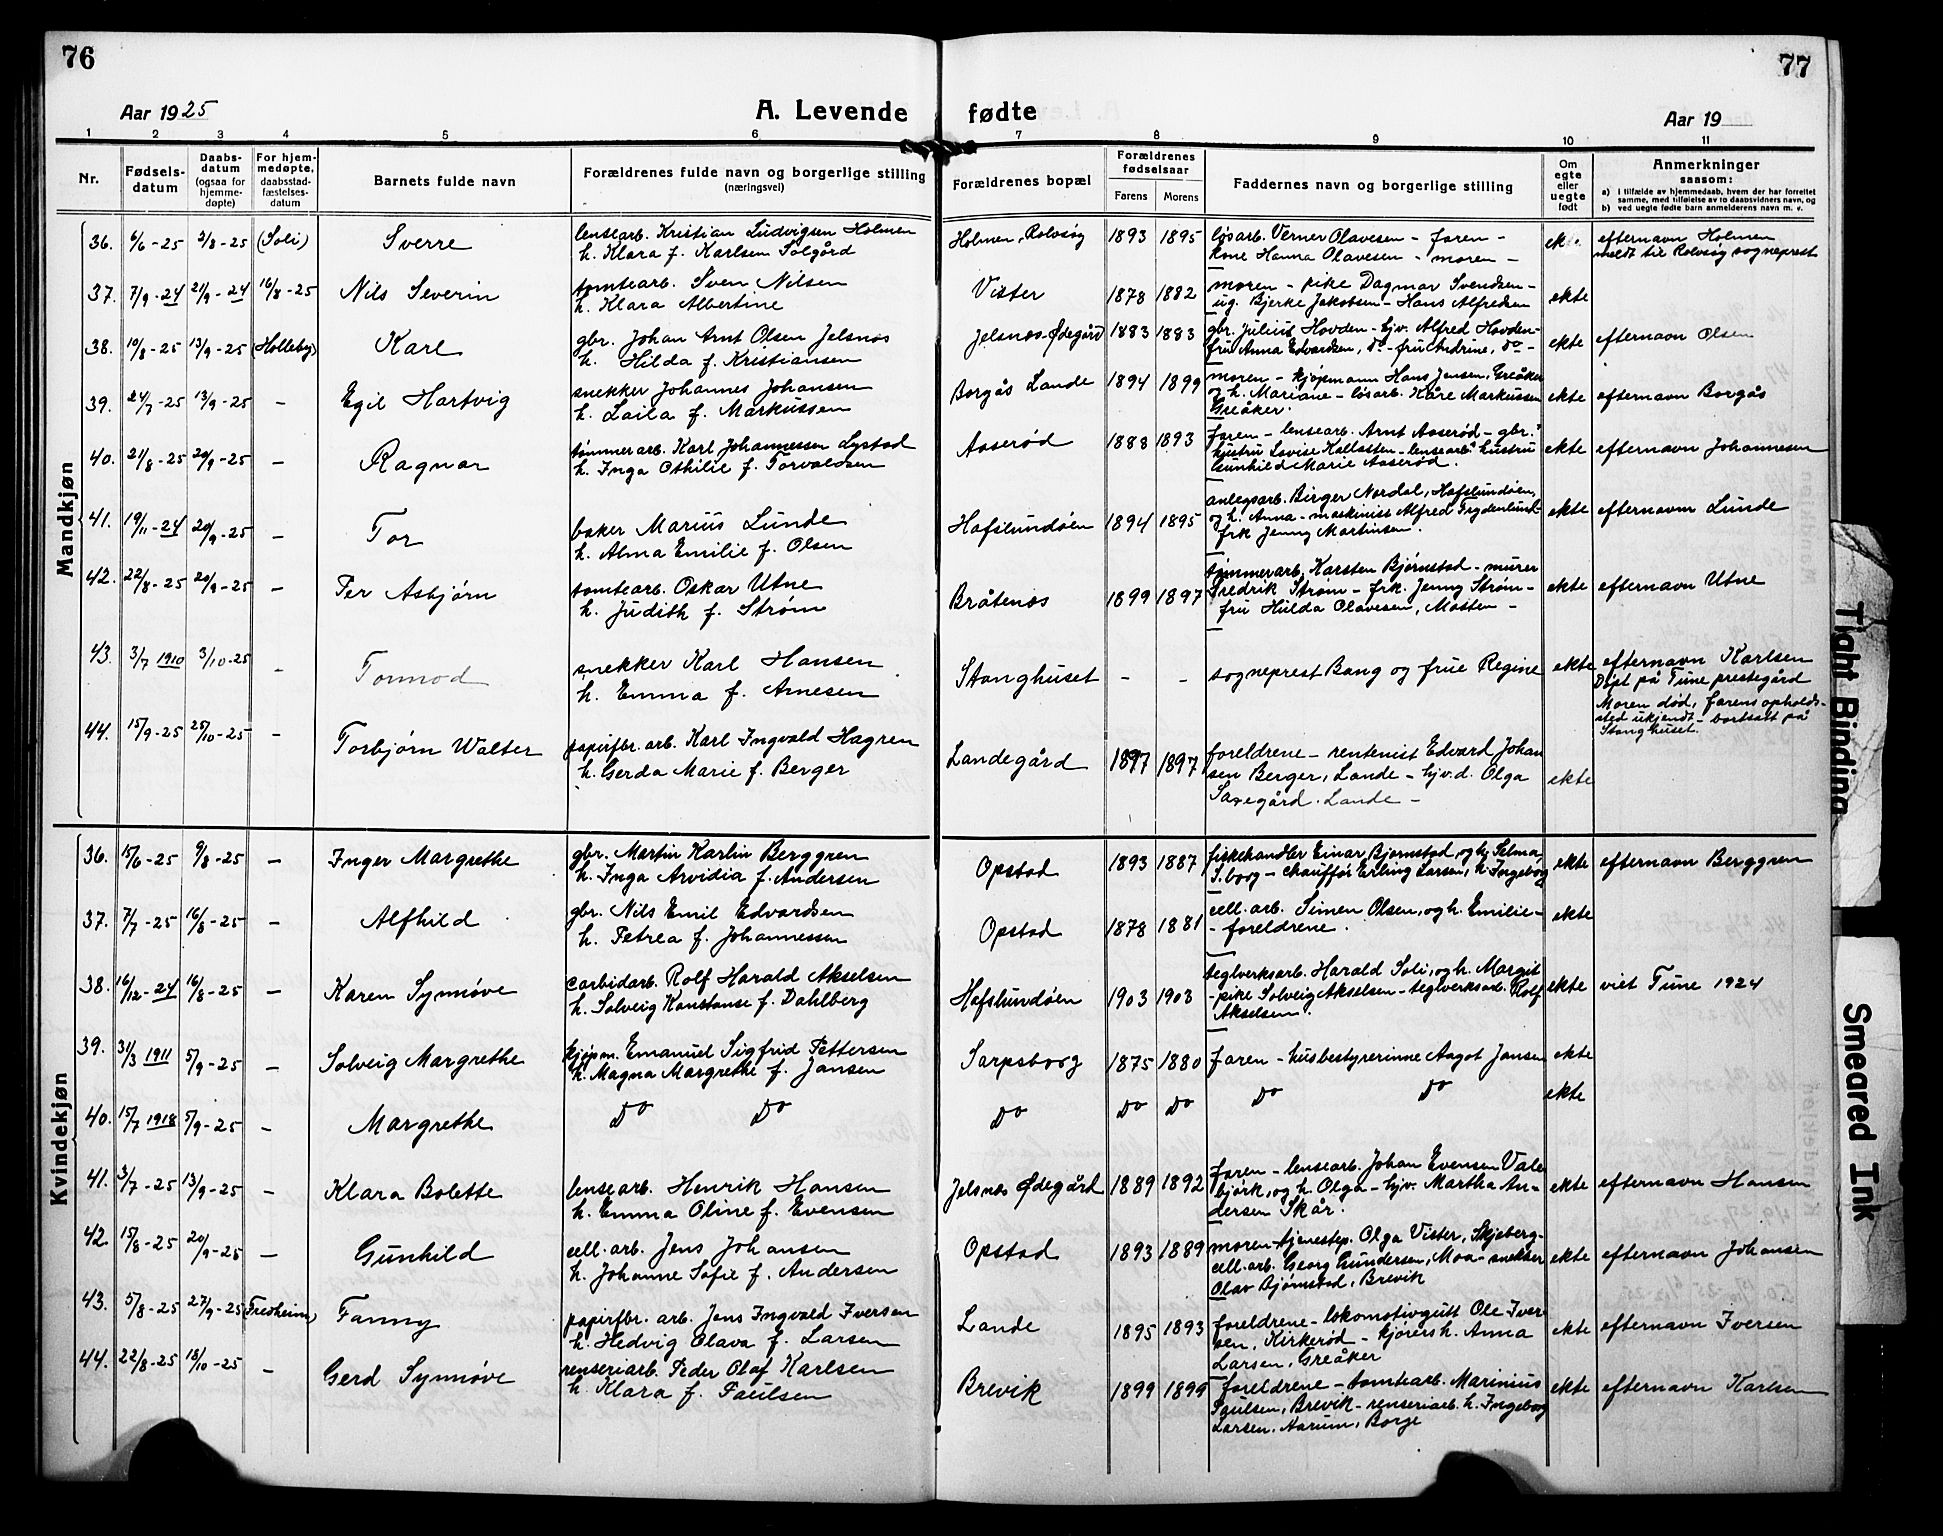 76
77
Aar 1925
A. Levende
fødte
Aar 19
1 2 3 4 5 6 7 8 9 10 11
Nr.
Fødsels-
datum
Daabs-
datum
(ogsaa for
hjemme-
døpte)
For hjem-
medøpte,
daabsstad-
fæstelses-
datum
Barnets fulde navn
Forældrenes fulde navn og borgerlige stilling
(næringsvei)
Forældrenes bopæl
Forældrenes
fødselsaar
Farens
Morens
Faddernes navn og borgerlige stilling
Om
egte
eller
uegte
født
Anmerkninger
saasom:
a) I tilfælde av hjemmedaab, hvem der har forrettet
samme, med tilføielse av to daabsvidners navn, og
b) ved uegte fødte barn anmelderens navn m. v.
Mandkjøn
36. 6/6-25 2/8-25 (Soli) Sverre
lensearb. Kristian Ludvigsen Holmen
h. Klara f. Karlsen Solgård
Holmen, Rolvsøy 1893 1895
løsarb. Verner Olavesen - faren -
kone Hanna Olavesen - moren -
ekte
efternavn Holmen
meldt til Rolvsøy sogneprest
37. 7/9-24 21/9-24 16/8-25 Nils Severin
tomtearb. Sven Nilsen
h. Klara Albertine
Vister 1878 1882
moren - pike Dagmar Svendsen -
ug. Bjerke Jakobsen - Hans Alfredsen
ekte
38. 10/8-25 13/9-25 (Holleby) Karl
gbr. Johan Arnt Olsen Jelsnes
h. Hilda f. Kristiansen
Jelsnes-Ødegård 1883 1883
gbr. Julius Hovden - hjv. Alfred Hovden -
fru Anna Edvardsen, do - fru Andrine, do -
ekte efternavn Olsen
39. 24/7-25 13/9-25 - Egil Hartvig
snekker Johannes Johansen
h. Laila f. Markussen
Borgås Lande 1894 1899
moren - kjøpmann Hans Jensen, Greåker
og h. Mariane - løsarb. Kåre Markussen
Greåker.
ekte efternavn Borgås
40. 21/8-25 20/9-25 - Ragnar
tømmerarb. Karl Johannessen Lystad
h. Inga Othilie f. Torvaldsen
Aaserød 1888 1893
faren - lensearb. Arnt Aaserød - gbr.s
hustru Lovise - lensearb.s hustru
Gunhild Marie Aaserød.
ekte efternavn Johannesen
41. 19/11-24 20/9-25 - Tor
baker Marius Lunde
h. Alma Emilie f. Olsen
Hafslundøen 1894 1895
anlegsarb. Birger Nordal, Hafslundøen,
og h. Anna - maskinist Alfred Frydenlund -
frk Jenny Martinsen.
ekte efternavn Lunde
42. 22/8-25 20/9-25 - Per Asbjørn
tomtearb. Oskar Utne
h. Judith f. Strøm
Bråtenes 1899 1897
tømmerarb. Karsten Bjørnstad - murer
Fredrik Strøm - frk. Jenny Strøm -
fru Hulda Olavesen, Mosten -
ekte efternavn Utne
43. 3/7 1910 3/10-25 - Tormod
snekker Karl Hansen
h. Emma f. Arnesen
Stanghuset - -
sogneprest Bang og frue Regine
ekte efternavn Karlsen
Døpt på Tune prestegård
Moren død, farens opholds-
sted ukjendt - bortsatt på
Stanghuset.
44. 15/9-25 25/10-25 - Torbjørn Walter
papirfbr. arb. Karl Ingvald Hagren
h. Gerda Marie f. Berger
Landegård 1897 1897
foreldrene - rentenist Edvard Johan
sen Berger, Lande - hjv. d. Olga
Saxegård. Lande -
ekte
Kvindekjøn
36. 15/6-25 9/8-25 - Inger Margrethe
gbr. Martin Karlin Berggren
h. Inga Arvidia f. Andersen
Opstad 1893 1887
fiskehandler Einar Bjørnstad, og h. Selma,
S.borg - chauffør Erling Larsen, h. Ingeborg
ekte efternavn Berggren
37. 7/7-25 16/8-25 - Alfhild
gbr. Nils Emil Edvardsen
h. Petrea f. Johannessen
Opstad 1878 1881
cell. arb. Simen Olsen, og h. Emilie -
- foreldrene.
ekte
38. 16/12-24 16/8-25 - Karen Synnøve
carbidarb. Rolf Harald Akselsen
h. Solveig Konstanse f. Dahlberg
Hafslundøen 1903 1903
teglverksarb. Harald Soli, og h. Margit
- pike Solveig Akselsen - teglverksarb. Rolf
Akselsen.
ekte viet Tune 1924
39. 31/3 1911 5/9-25 - Solveig Margrethe
kjøpm. Emanuel Sigfrid Pettersen
h. Magna Margrethe f. Jansen
Sarpsborg 1875 1880
faren - husbestyrerinne Aagot Jansen
ekte
40. 15/7 1918 5/9-25 - Margrethe
do do
do do do
do do
ekte
41. 3/7-25 13/9-25 - Klara Bolette
lensearb. Henrik Hansen
h. Emma Oline f. Evensen
Jelsnes Ødegård 1889 1892
faren - lensearb. Johan Evensen Vale
bjørk, og h. Olga - hjv. Martha An-
dersen Skår.
ekte efternavn Hansen
42. 15/8-25 20/9-25 - Gunhild
cell. arb. Jens Johansen
h. Johanne Sofie f. Andersen
Opstad 1893 1889
moren - tjenestep. Olga Vister, Skjeberg -
cell. arb. Georg Gundersen, Moa - snekker
Olav Bjørnstad, Brevik
ekte efternavn Johansen
43. 5/8-25 27/9-25 (Fredheim) Fanny
papirfbr. arb. Jens Ingvald Iversen
h. Hedvig Olava f. Larsen
Lande 1895 1893
foreldrene - lokomotivgutt Ole Iver-
sen, Kirkerød - kjørersh. Anna
Larsen, Greåker
ekte efternavn Iversen
44. 22/8-25 18/10-25 - Gerd Synnøve
renseriarb. Peder Olaf Karlsen
h. Klara f. Paulsen
Brevik 1899 1899
foreldrene - tomtearb. Marinius
Paulsen, Brevik - renseriarb. h. Ingeborg
Larsen, Aarum, Borge
ekte efternavn Karlsen
Tight Binding
Smeared Ink